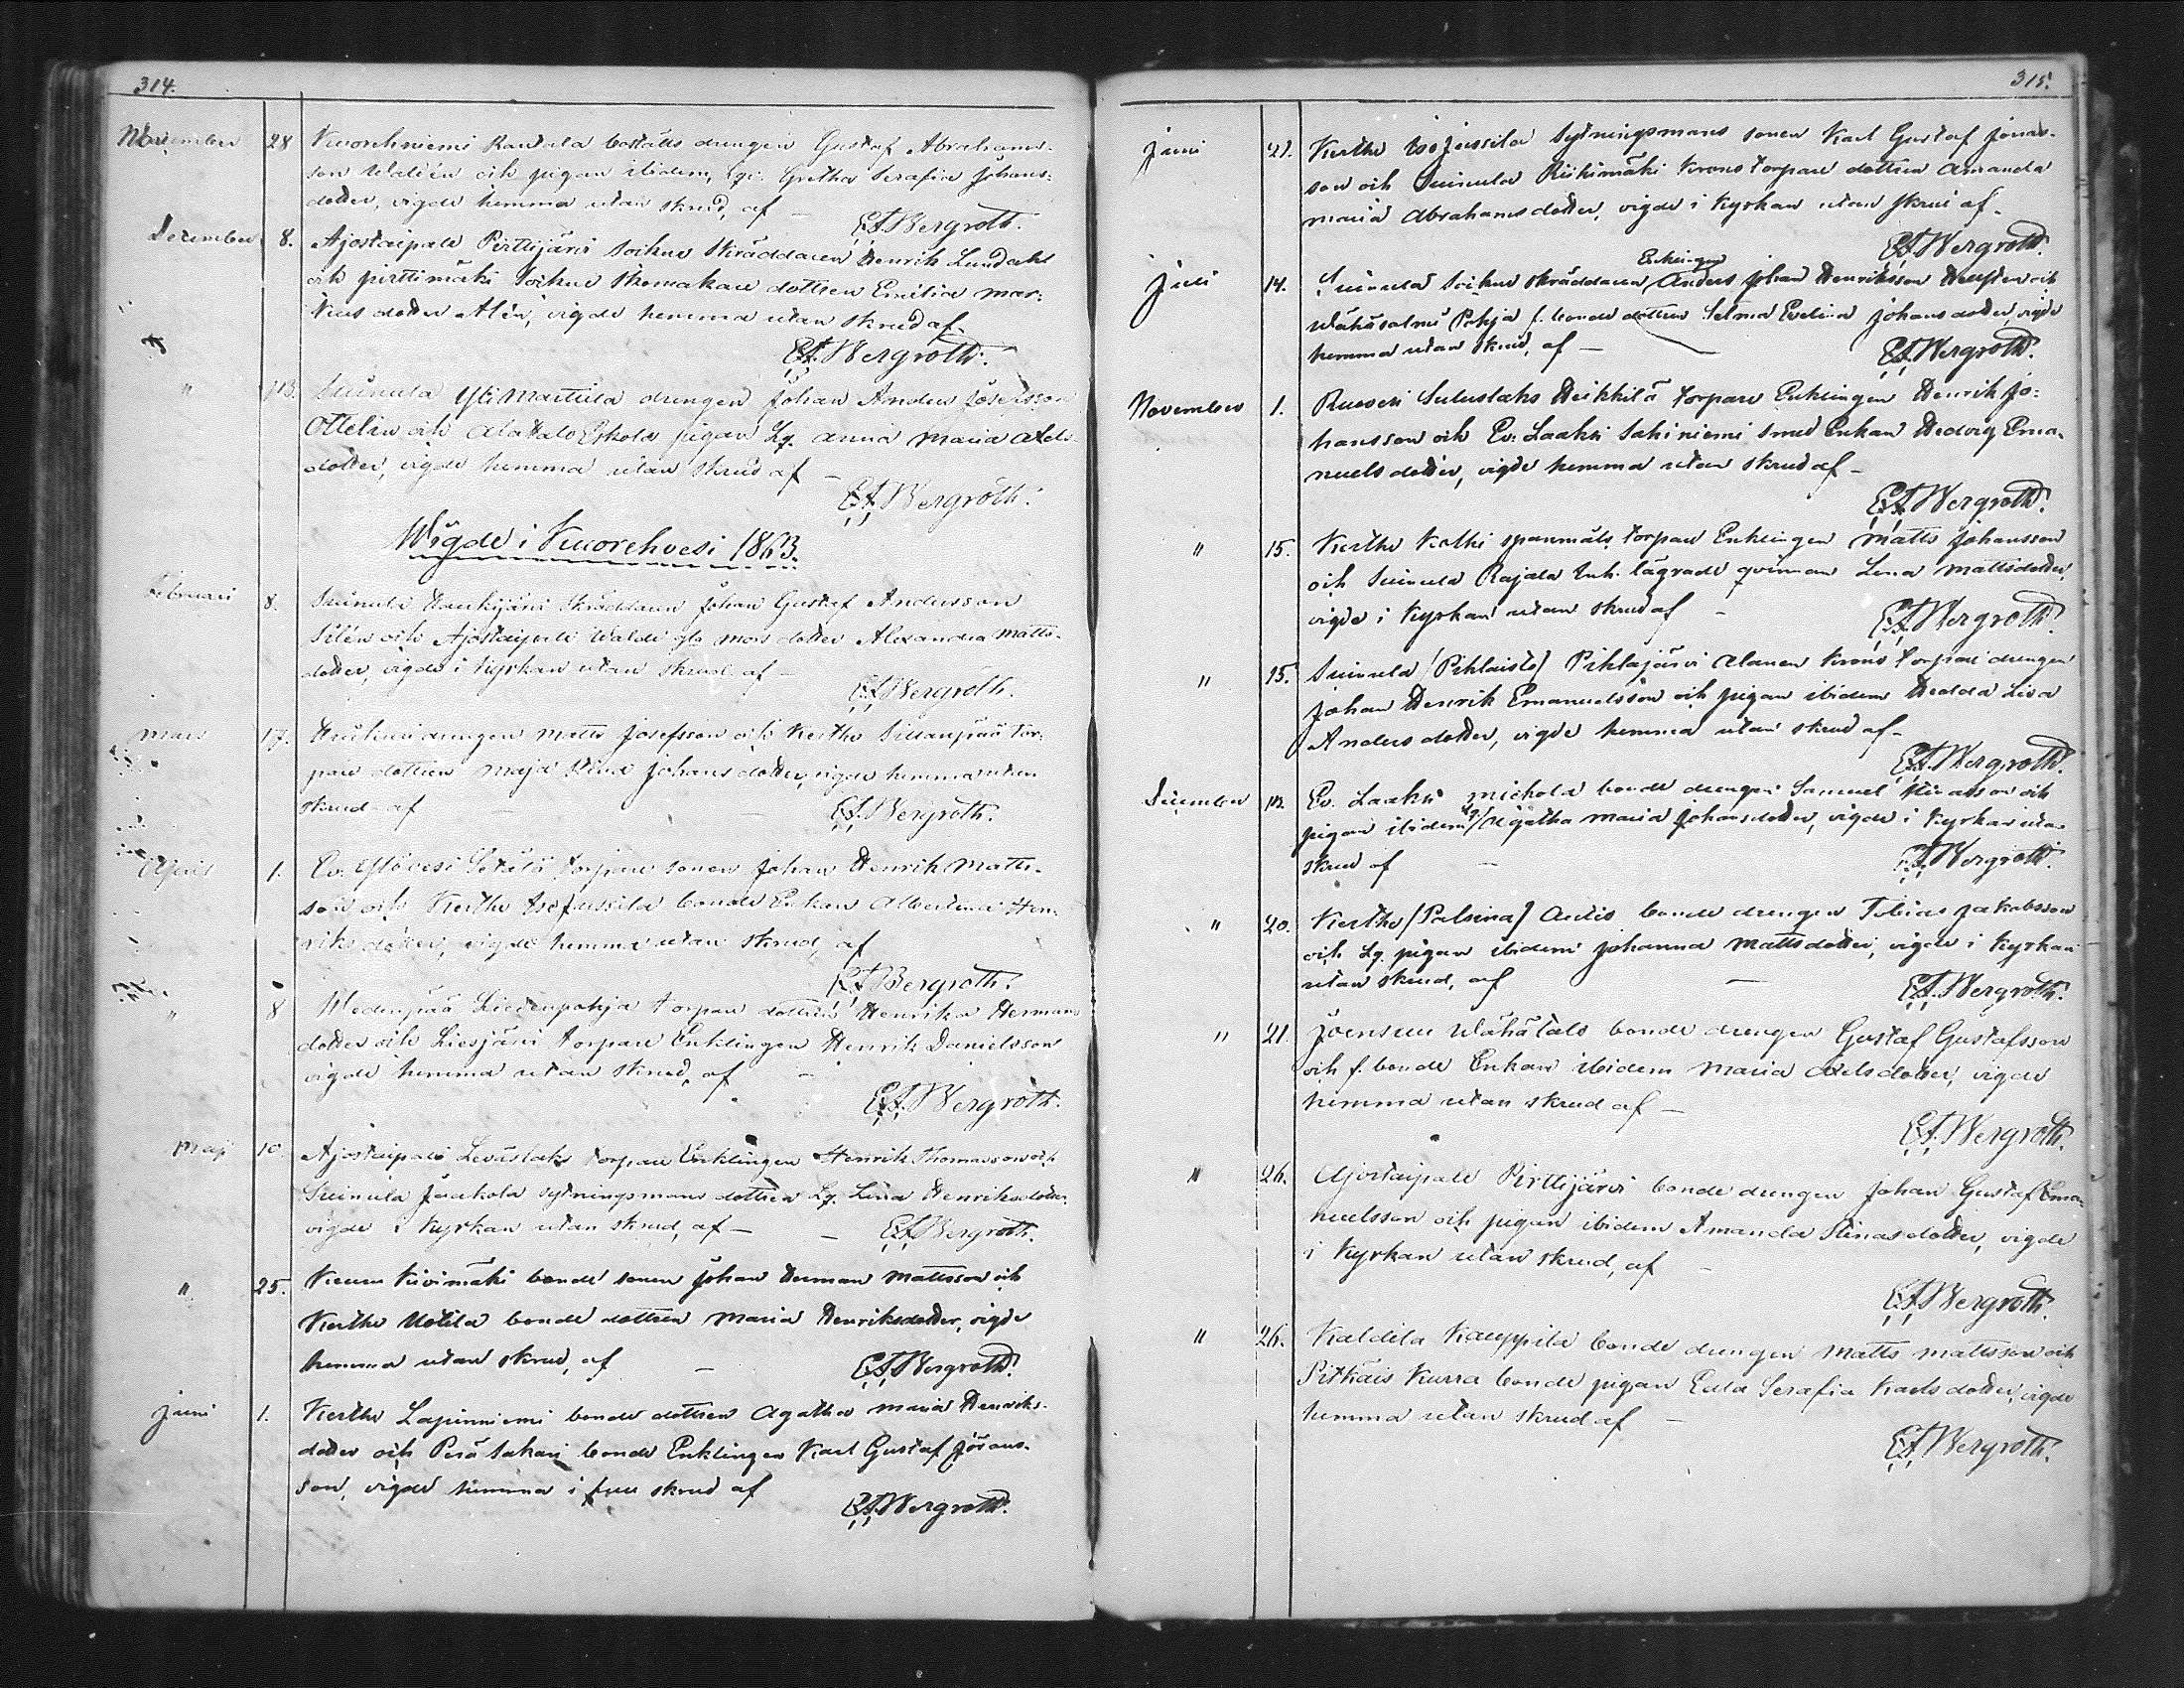 314.
November 28 Kuorehniemi Rantala boställs drengen Gustaf Abrahams-
son Walén och pigan ibidem, qv. Gretha Serafia Johans-
dotter, vigde hemma utan skrud, af –
E.A. Bergroth.
December 8. Ajostaipale Pirttijärvi Sockne Skräddaren Henrik Lundahl
och pirttimäki Sockne Skomakare dottren Emilia Mar-
kus dotter Alén, vigde hemma utan skrud af –
E.A. Bergroth.
" 13. Suinula Yli Mattila drengen Johan Anders Josefsson
Ottelin och Alatalo Eskola pigan Lg. Anna Maria Axels-
dotter, vigde hemma utan skrud af –
E.A. Bergroth.
Wigde i Kuorehvesi 1863.
Februari 8. Suinula Haukijärvi Skräddaren Johan Gustaf Andersson
Silén och Ajostaipale mors dotter Alexandra Matts-
dotter, vigde i Kyrkan utan skrud af –
E.A. Bergroth.
Mars 17. drengen Matts Josefsson och Kerthe Sillanpää tor-
pare dottren Maja Stina Johans dotter, vigde hemma utan
skrud af –
E.A. Bergroth.
April 1. Ev. Ylövesi torpare sonen Johan Henrik Matts-
son och Kerthe Isojussila bonde Enkan Albertina Hen-
riks dotter, vigde hemma utan skrud, af
E.A. Bergroth.
" 8 Wedenpää Liedenpohja torpare dottren Henrika Hermans
dotter och Liesjärvi torpare Enklingen Henrik Danielsson
vigde hemma utan skrud, af –
E.A. Bergroth.
Maj 10. Ajostaipale Leväslaks torpare Enklingen Henrik Thomasson och
Suinula Jaakola sytningsmans dottren Lg. Lina Henriksdotter
vigde i Kyrkan utan skrud, af –
E.A. Bergroth.
" 25. Keuru Kivimäki bonde sonen Johan Herman Mattsson och
Kerthe Uotila bonde dottren Maria Henriksdotter, vigde
hemma utan skrud, af –
E.A. Bergroth.
Juni 1. Kerthe Lapinniemi bonde dottren Agatha Maria Henriks-
dotter och Perä Sakari bonde Enklingen Karl Gustaf Jonas-
son, vigde hemma i full skrud af
E.A. Bergroth.
315.
Juni 21. Kerthe Isojussila Sytningsmans sonen Karl Gustaf Jonas-
son och Suinula Riihimäki Krono torpare dottren Amanda
Maria Abrahams dotter, vigde i Kyrkan utan skrud af –
E.A. Bergroth.
Juli 14. Suinula Sockne Skräddaren Enklingen Anders Johan Henriksson och
Wähäsalmi Pohja f. bonde dottren Selma Evelina Johans dotter, vigde
hemma utan skrud, af –
E.A. Bergroth.
November 1. Ruovesi Suluslaks Heikkilä torpare Enklingen Henrik Jo-
hansson och Ev. Laakso Sahiniemi smed Enkan Hedvig Ema-
nuels dotter, vigde hemma utan skrud af –
E.A. Bergroth.
" 15. Kerthe Kolhi spanmåls torpare Enklingen Matts Johansson
och Suinula Rajala Inh. lägrade qvinnan Lena Mattsdotter,
vigde i Kyrkan utan skrud af –
E.A. Bergroth.
" 15. Suinula [Pihlaisto] Pihlajärvi Alanen Krono torpare drengen
Johan Henrik Emanuelsson och pigan ibidem Hedda Lisa
Anders dotter, vigde hemma utan skrud af –
E.A. Bergroth.
December Ev. Laakso Mickola bonde drengen Samuel och
pigan ibidem Lg. Agatha Maria Johansdotter, vigde i Kyrkan utan
skrud af –
E.A. Bergroth.
" 20. Kerthe [Palsina] Antis bonde drengen Tobias Jakobsson
och Lg. pigan ibidem Johanna Mattsdotter, vigde i Kyrkan
utan skrud, af –
E.A. Bergroth.
" 21. Joensuu Wähätalo bonde drengen Gustaf Gustafsson
och f. bonde Enkan ibidem Maria Axels dotter, vigde
hemma utan skrud af –
E.A. Bergroth.
" 26. Ajostaipale Pirttijärvi bonde drengen Johan Gustaf Ema-
nuelsson och pigan ibidem Amanda Stinas dotter, vigde
i Kyrkan utan skrud, af –
E.A. Bergroth.
" 26. Kaldila Kauppila bonde drengen Matts Mattsson och
Pitkäis Kurra bonde pigan Edla Serafia Karls dotter, vigde
hemma utan skrud af –
E.A. Bergroth.